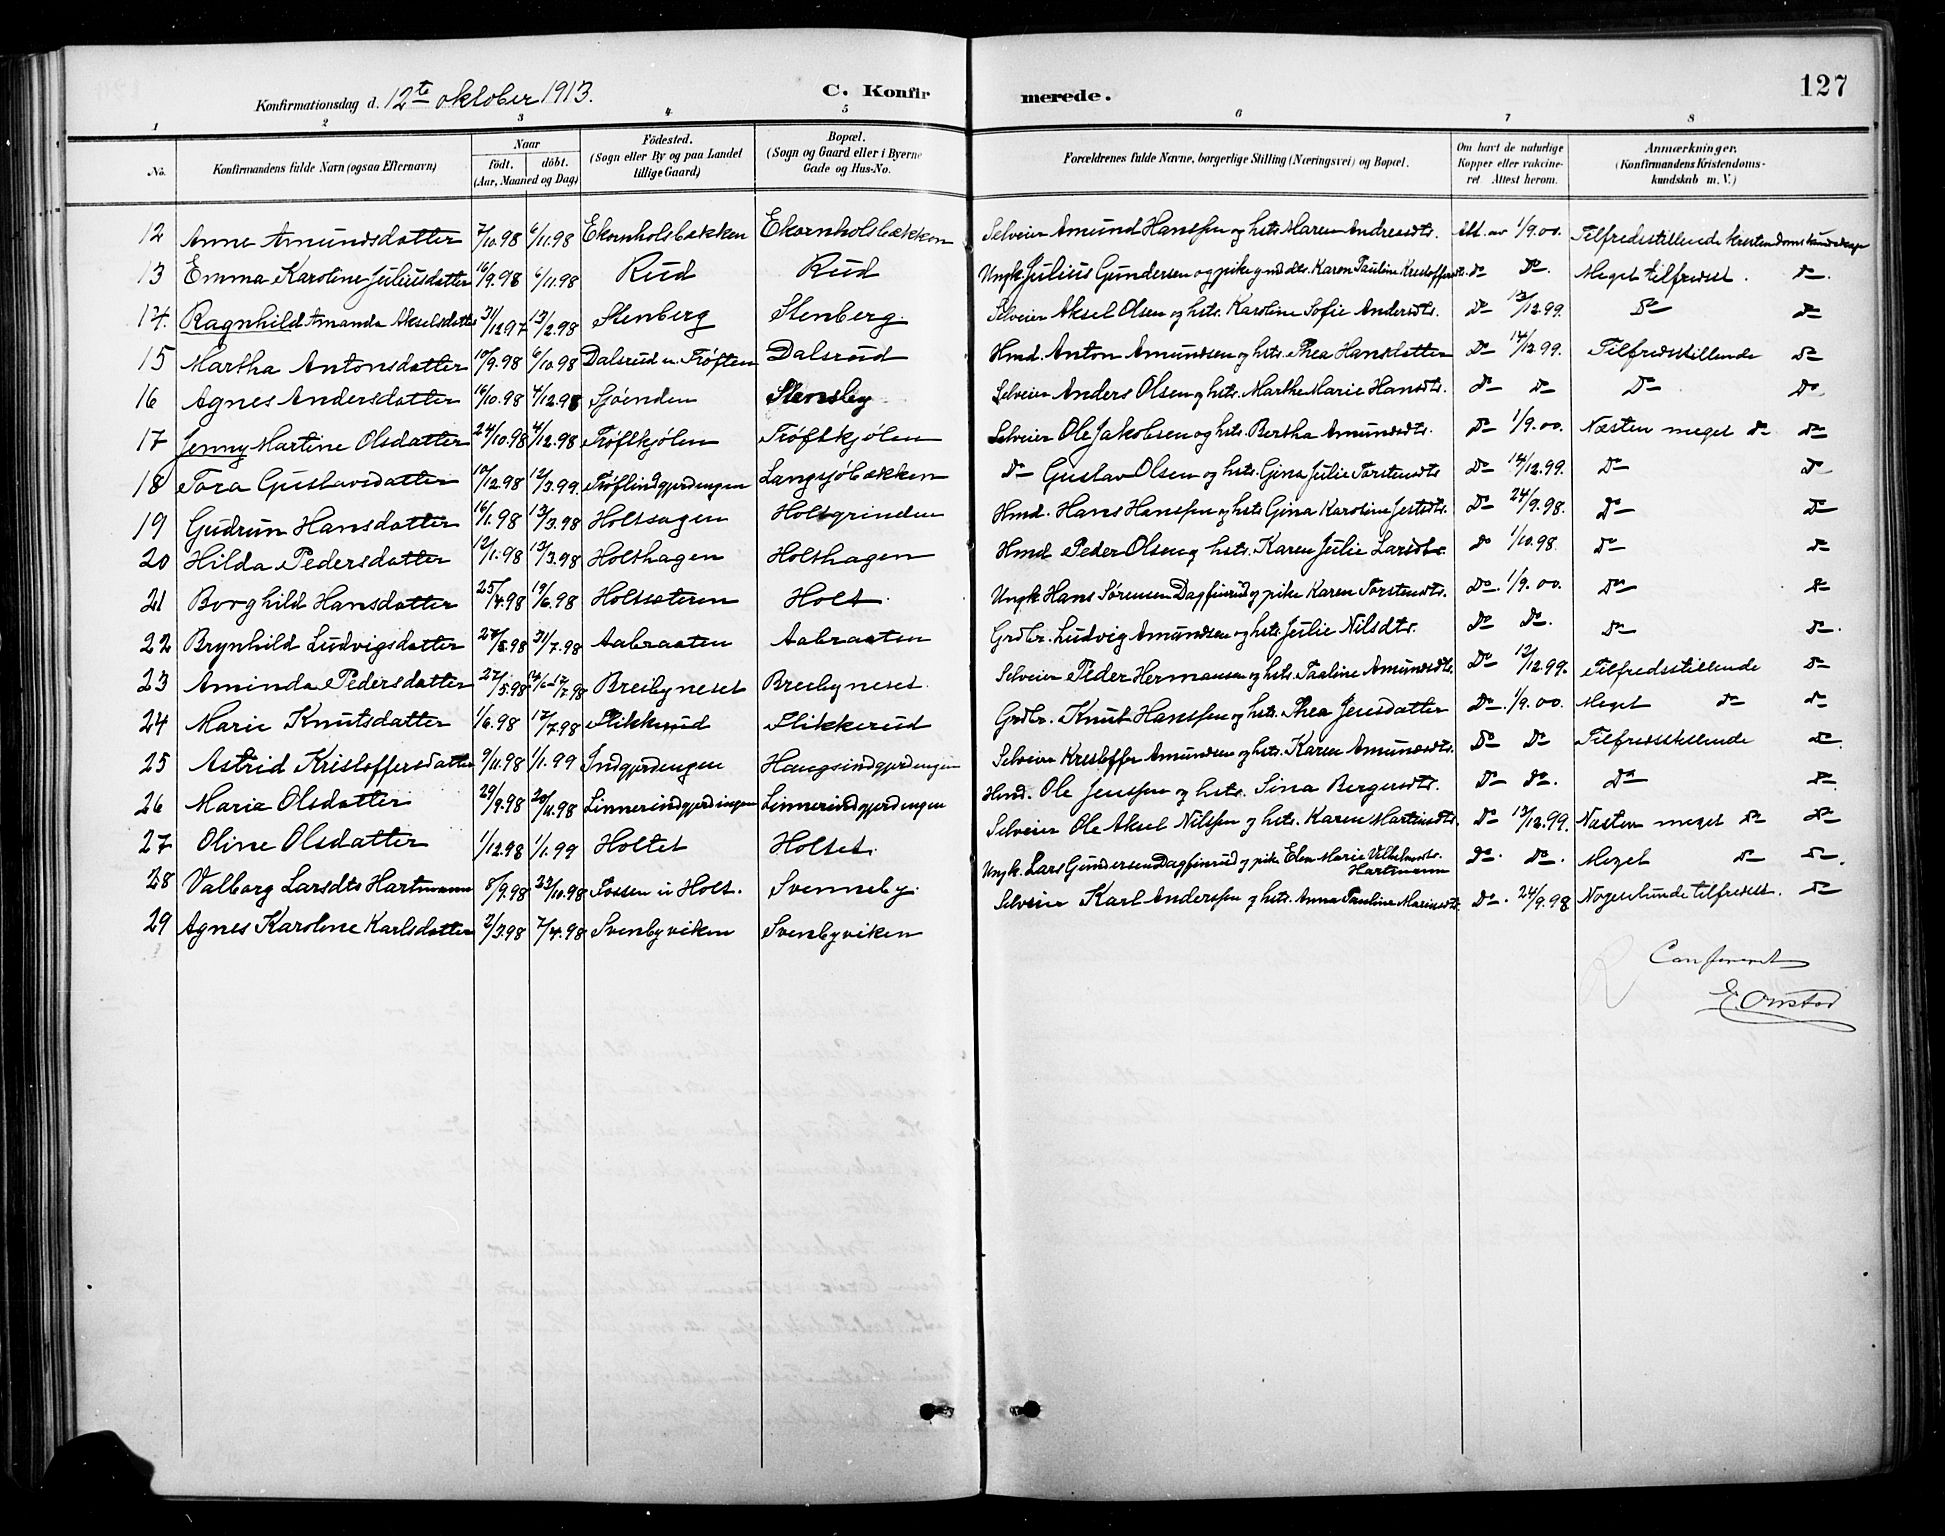 127
Konfirmationsdag d. 12te oktober 1913. C. Konfirmerede.
1 2 3 4 5 6 7 8
No. Konfirmandens fulde Navn (ogsaa Efternavn) Naar födt. döbt. (Aar, Maaned og Dag) Födested. (Sogn eller By og paa Landet tillige Gaard) Bopæl. (Sogn og Gaard eller i Byerne Gade og Hus-No. Forældrenes fulde Navne, borgerlige Stilling (Næringsvei) og Bopæl. Om havt de naturlige Kopper eller vakcineret. Attest herom. Anmærkninger. (Konfirmandens Kristendomskundskab m. V.)
12 Anne Amundsdatter 7/10.98 6/11.98 Ekornholsbækken Ekornholsbækken Selveier Amund Hanssen og hstr. Maren Andreasdtr. Att. av 1/9.00. Tilfredsstillende kristendomskundskap
13 Emma Karoline Juliusdatter 16/9.98 6/11.98 Rud Rud Ungk. Julius Gundersen og pike Karen Pauline Kristoffersdtr. Do Do. Meget tilfredsst. Do.
14. Ragnhild Amanda Akselsdatter 31/12.97 13/2.98 Stenberg Stenberg. Selveier Aksel Olsen og hstr. Karoline Sofie Andersdtr. Do 13/12.99. Do Do
15 Martha Antonsdatter 10/9.98 6/10.98 Dalsrud u. Trøften Dalsrud Hmd. Anton Amundsen og hstr. Thea Hansdatter Do 14/12.99. Tilfredsstillende Do
16 Agnes Andersdatter 16/10.98 4/12.98 Sjøenden Stensby Selveier Anders Olsen og hstr. Marthe Marie Hansdtr. Do Do Do Do
17 Jenny Martine Olsdatter 24/10.98 4/12.98 Trøftkjølen Trøftkjølen Selveier Ole Jakobsen og hstr. Bertha Amundsdtr. Do 1/9.00. Næsten meget Do Do
18 Tora Gustavsdatter 10/12.98 12/3.99. Trøftindgjerdingen Langsjøbækken Do Gustav Olsen og hstr. Gina Julie Torstensdtr Do 14/12.99. Do Do
19 Gudrun Hansdatter 16/1.98 13/3.98 Holtsagen Holtgrinden Hmd. Hans Hanssen og hstr. Gina Karoline Do 24/9.98. Do Do
20 Hilda Pedersdatter 12/1.98 13/3.98 Holthagen Holthagen Hmd. Peder Olsen og hstr. Karen Julie Larsdtr. Do 1/10.98. Do Do
21 Borghild Hansdatter 25/4.98 19/6.98 Holtsæteren Holt. Ungk. Hans Sørensen Dagfinrud og pike Karen Torstensdtr. Do. 1/9.00. Do Do
22 Brynhild Ludvigsdatter 28/5.98 31/7.98 Aabraaten Aabraaten Grdbr. Ludvig Amundsen og hstr. Julie Nilsdtr. Do Do. Do Do.
23 Aminda Pedersdatter 27/5.98 Breibyneset Breibyneset. Selveier Peder Hermansen og hstr. Pauline Amundsdtr. Do 13/12.99. Tilfredsstillende Do
24 Marie Knutsdatter 1/6.98 17/7.98 Flikkerud Flikkerud Grdbr. Knut Hanssen og hstr. Thea Jensdatter Do. 1/9.00. Meget Do Do
25 Astrid Kristoffersdatter 9/11.98 1/1.99 Indgjerdingen Haugsindgjerdingen Selveier Kristoffer Amundsen og hstr. Karen Amundsdtr. Do Do Tilfredsstillende Do.
26 Marie Olsdatter 29/9.98 20/11.98 Linnerindgjerdingen Linnerindgjerdingen Hmd. Ole Jenssen og hstr. Sina Bergersdtr. Do Do. Do Do.
27 Oline Olsdatter 1/12.98 1/1.99 Holtet Holtet. Selveier Ole Aksel Nilssen og hstr. Karen Martinsdtr. Do 13/12.99. Næsten meget Do Do
28 Valborg Larsdtr Hartmann 8/9.98 23/10.98 Fossen u. Holt. Svenneby. Ungk. Lars Gundersen Dagfinrud og pike Elen Marie Vilhelmsdtr. Hartmann Do. Do. Meget Do Do.
29 Agnes Karoline Karlsdatter 2/3.98 7/4.98 Svenbyviken Svenbyviken Selveier Karl Anderssen og hstr. Anna Pauline Do. 24/9.98 Nogenlunde tilfredsst. Do
Confereret
E. Onstad